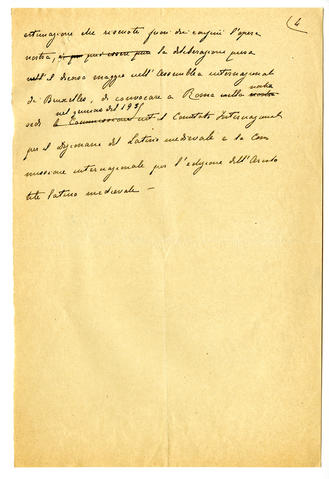 4
estimazione che riscuote fuori dei confini l'opera
nostra, è la deliberazione presa
nel decorso maggio nell'Assemblea internazionale
di Bruxelles, di convocare a Roma nella nostra
sede nel gennaio del 1935 il Comitato Internazionale
per il Dizionario del Latino medievale e la Com
missione internazionale per l'edizione dell'Aristo
tele latino medievale —